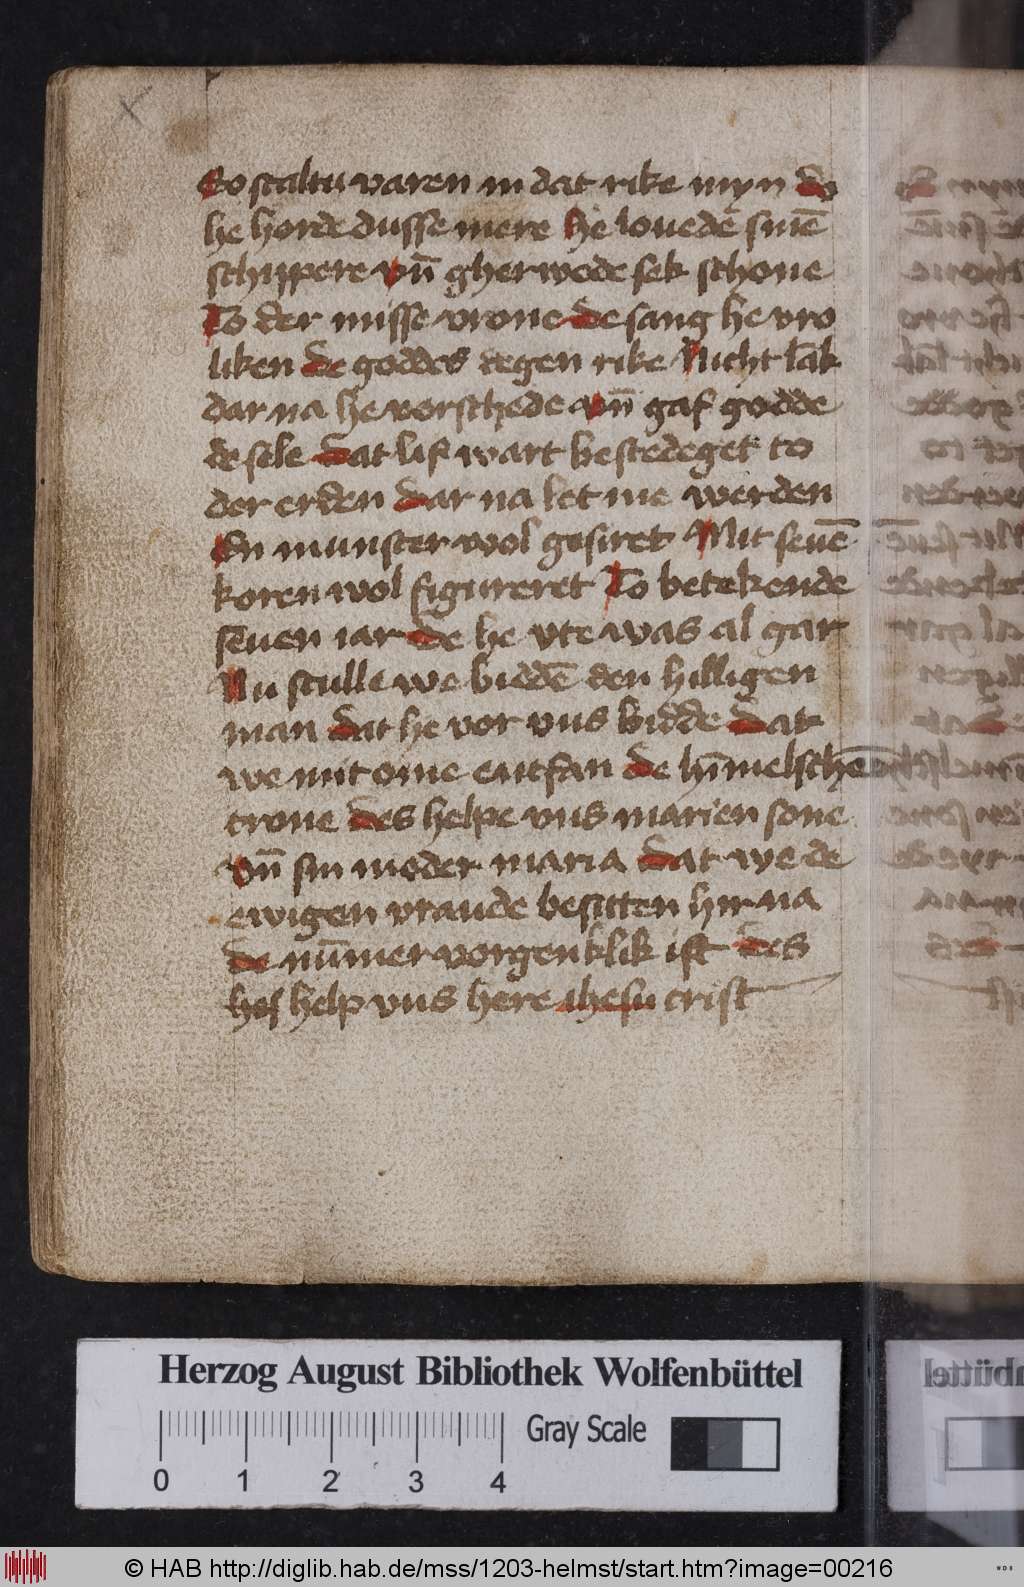 So scaltu varen in dat rike myn do
he horde dusse mere he louede sinē
schippere vn̄ gherwede sek schone
To der misse vrone de sang he vro
liken de goddes degen rike Nicht lāk
dar na he vorschede vn̄ gaf godde
de sele dat lif wart bestedeget to
der erden dar na let me werden
En munster wol gesiret Mit seuē
koren wol figureret To betekende
seuen iar de he vte was al gar
Nu sculle we biddē den hilligen
man dat he vor vns bidde dat
we mit ome entfan de hīmelschen
crone des helpe vns marien sone
vn̄ sin moder maria dat we de
ewigen vraude besitten hir na
de nūmer vorgenklik ist des
help vns here ihesu crist
Herzog August Bibliothek Wolfenbüttel
Gray Scale
0 1 2 3 4
© HAB http://diglib.hab.de/mss/1203-helmst/start.htm?image=00216